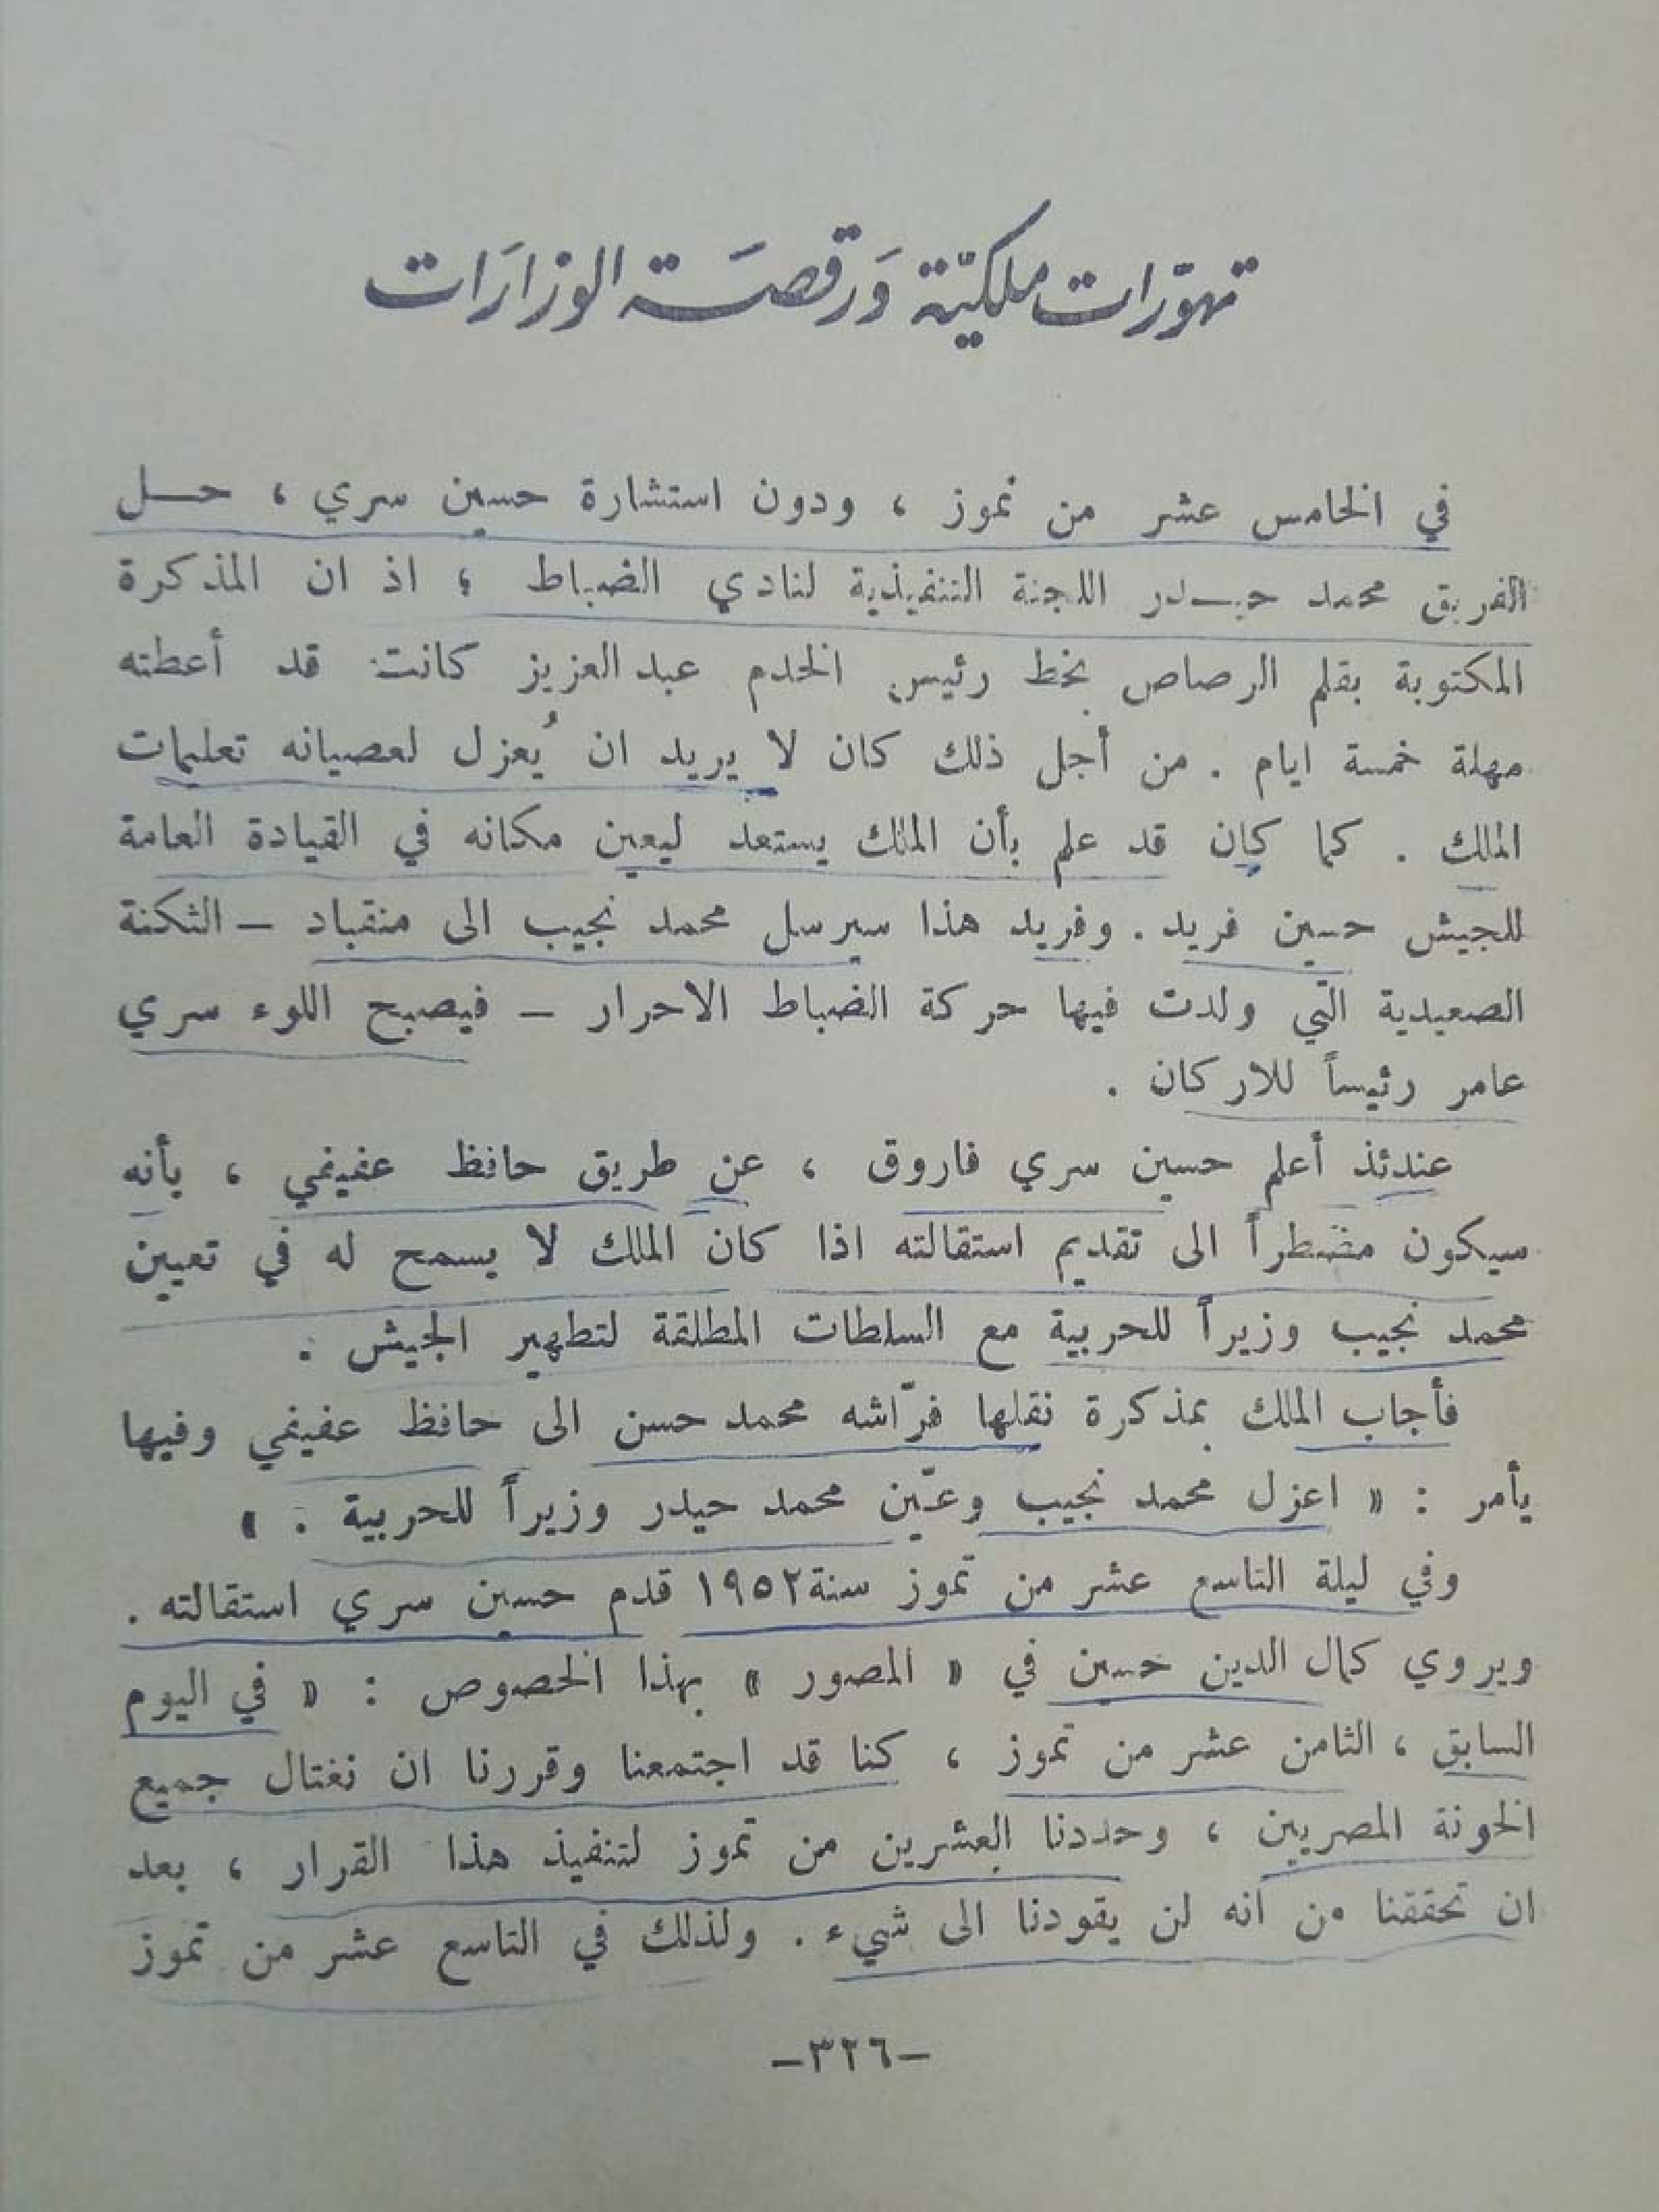 تهوّرات ملكيّة وَرقصَة الوزارَات
في الخامس عشر من تموز ، ودون استشارة حسين سري ، حل
الفريق محمد حيدر اللجنة التنفيذية لنادي الضباط ؛ اذ ان المذكرة
المكتوبة بقلم الرصاص بخط رئيس الخدم عبد العزيز كانت قد أعطته
مهلة خمسة ايام . من أجل ذلك كان لا يريد ان يُعزل لعصيانه تعليمات
الملك . كما كان قد علم بأن الملك يستعد ليعين مكانه في القيادة العامة
للجيش حسين فريد . وفريد هذا سيرسل محمد نجيب الى منقباد – الثكنة
الصعيدية التي ولدت فيها حركة الضباط الاحرار – فيصبح اللوء سري
عامر رئيساً للاركان .
عندئذ أعلم حسين سري فاروق ، عن طريق حافظ عفيفي ، بأنه
سيكون مضطراً الى تقديم استقالته اذا كان الملك لا يسمح له في تعيين
محمد نجيب وزيراً للحربية مع السلطات المطلقة لتطهير الجيش .
فأجاب الملك بمذكرة نقلها فرّاشه محمد حسن الى حافظ عفيفي وفيها
يأمر : « اعزل محمد نجيب وعيّن محمد حيدر وزيراً للحربية . »
وفي ليلة التاسع عشر من تموز سنة ١٩٥٢ قدم حسين سري استقالته .
ويروي كمال الدين حسين في « المصور » بهذا الخصوص : « في اليوم
السابق ، الثامن عشر من تموز ، كنا قد اجتمعنا وقررنا ان نغتال جميع
الخونة المصريين ، وحددنا العشرين من تموز لتنفيذ هذا القرار ، بعد
ان تحققنا من انه لن يقودنا الى شيء . ولذلك في التاسع عشر من تموز
–٣٢٦–